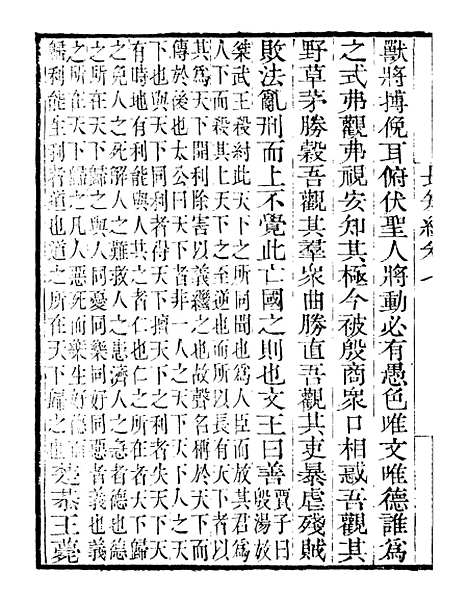 獸將搏俛耳俯伏聖人將動必有愚色唯文唯德誰為
之式弗觀弗視安知其極今被殷商衆口相惑吾觀其
野草茅勝穀吾觀其羣衆曲勝直吾觀其吏暴虐殘賊
敗法亂刑而上不覺此亡國之則也文王曰善賈子曰
殷湯放
桀武王殺紂此天下之所同聞也為人臣而放其君為
人下而殺其上天下之至逆也而所以長有天下者以
其為天下開利除害以義繼之也故聲名稱於天下而
傳於後也太公曰天下者非一人之天下天下人之天
下也與天下同利者得天下擅天下之利者失天下天
有時地有利能與人共之者仁也仁之所在者天下歸
之免人之死解人之難救人之患濟人之急者德也德
之所在天下歸之與人同憂同樂同好同惡者義也義
之所在天下歸之凡人惡死而樂生好德而
歸利能生利者道也道之所在天下歸之也楚恭王薨